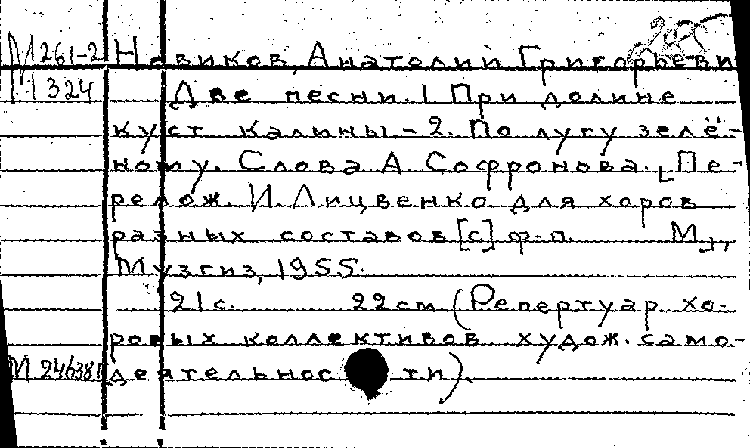 М261-2 Новиков, Анатолий Григорьеви
М 324 Две песни. 1 При долине
куст калины - 2. По лугу зелё-
ному. Слова А Софронова. [Пе-
релож. И. Лицвенко для хоров
разных составов [с] ф-п. М.,
Музгиз, 1955.
21с. 22см (Репертуар хо-
ровых коллективов худож. само-
деятельности).